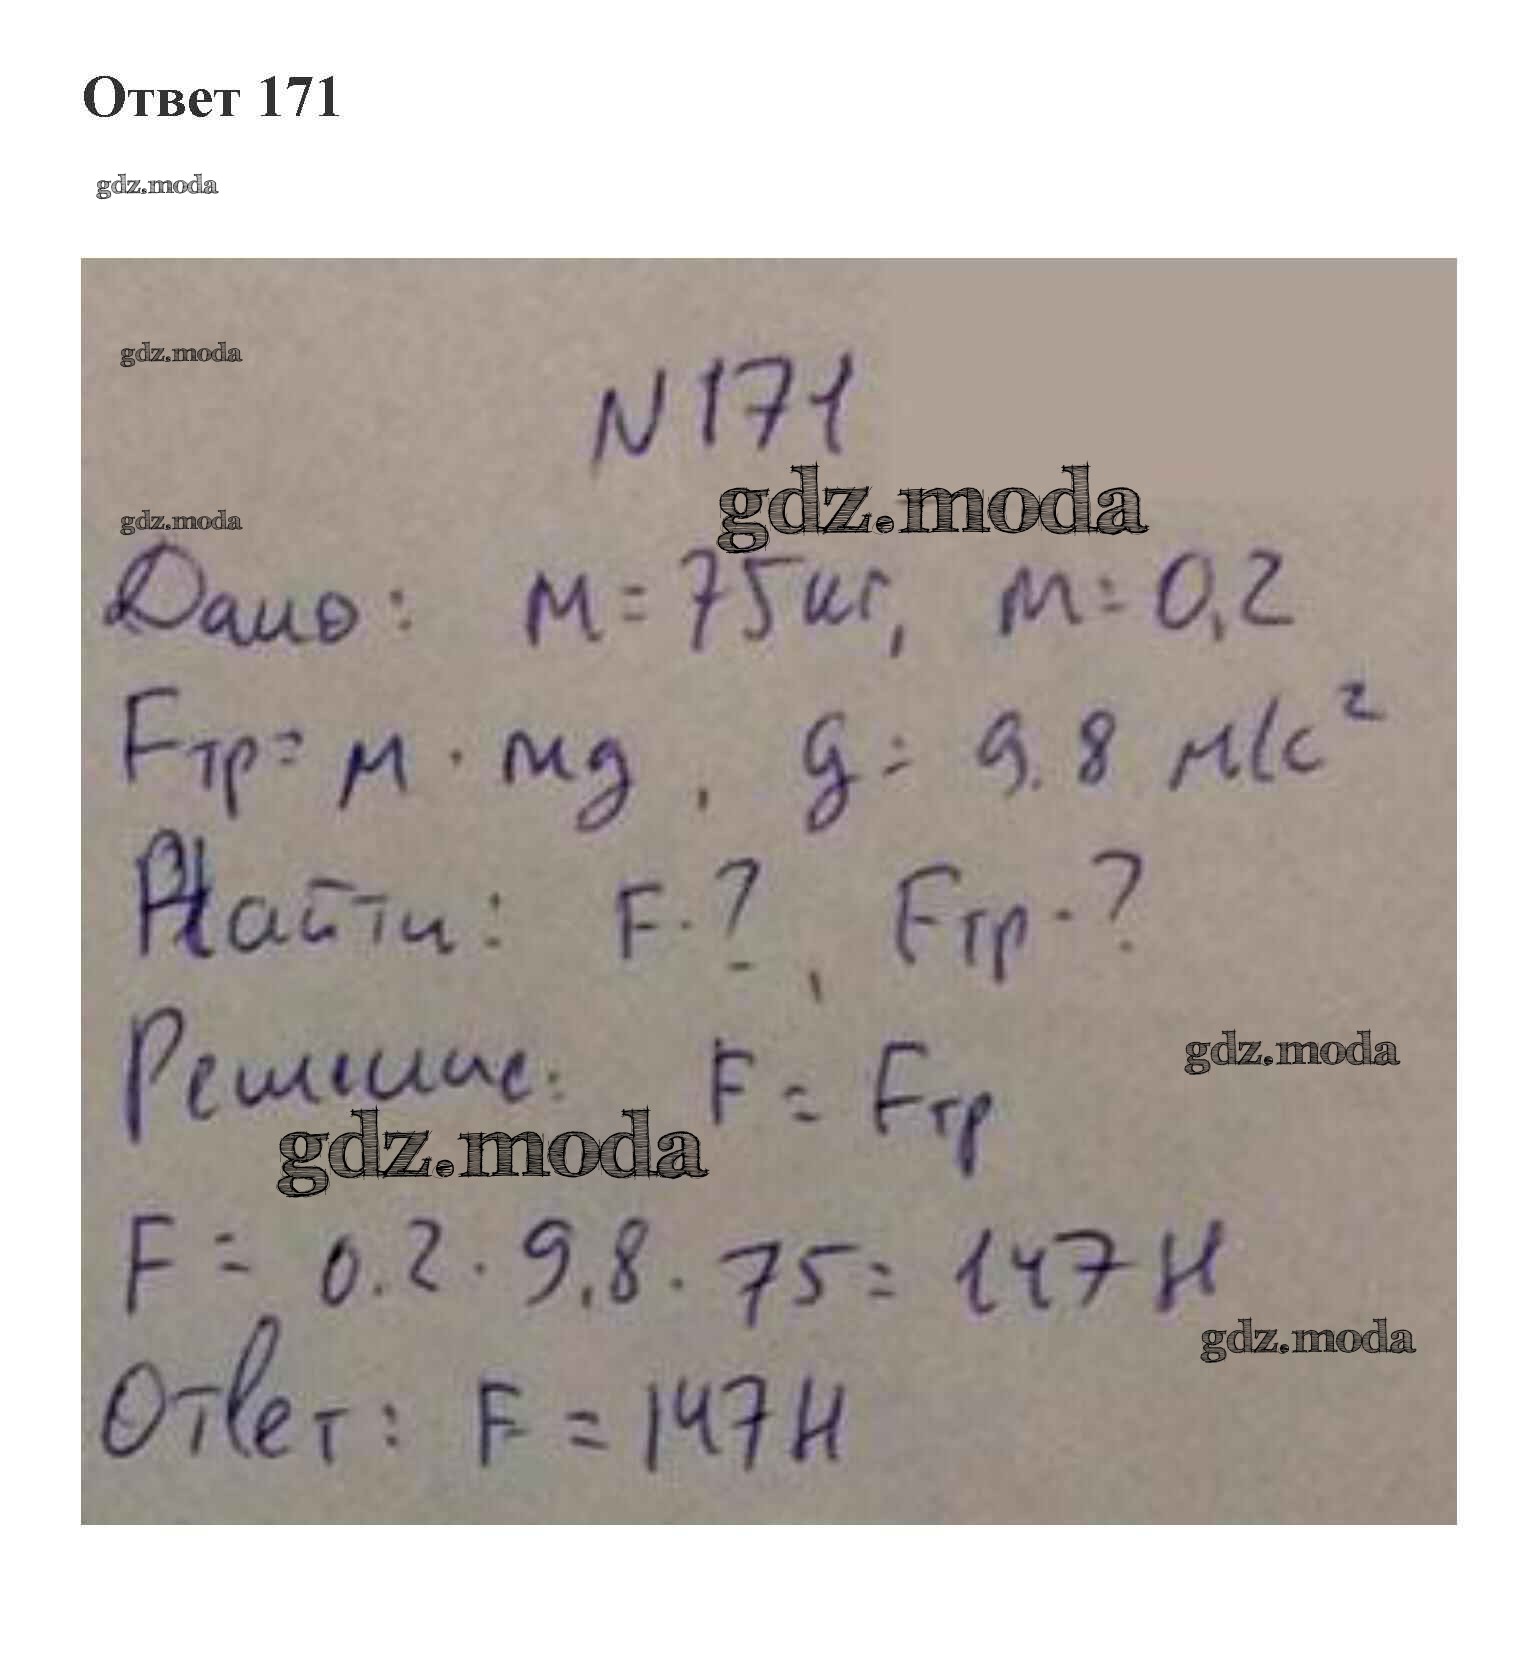 Ответ 171
gdz.moda
gdz.moda
N171
gdz.moda
gdz.moda
Дано: м = 75кг, м = 0,2
Fтр = м · mg, g = 9.8 м/с²
Найти: F-?, Fтр-?
Решение: F = Fтр
gdz.moda
gdz.moda
F = 0.2 · 9,8 · 75 = 147 Н
gdz.moda
Ответ: F = 147 Н